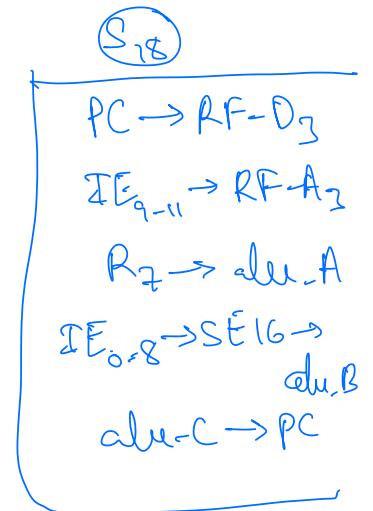 S18
PC → RF-D3
IE9-11 → RF-A3
R7 → alu-A
IE0-8 → SE16 →
alu-B
alu-C → PC